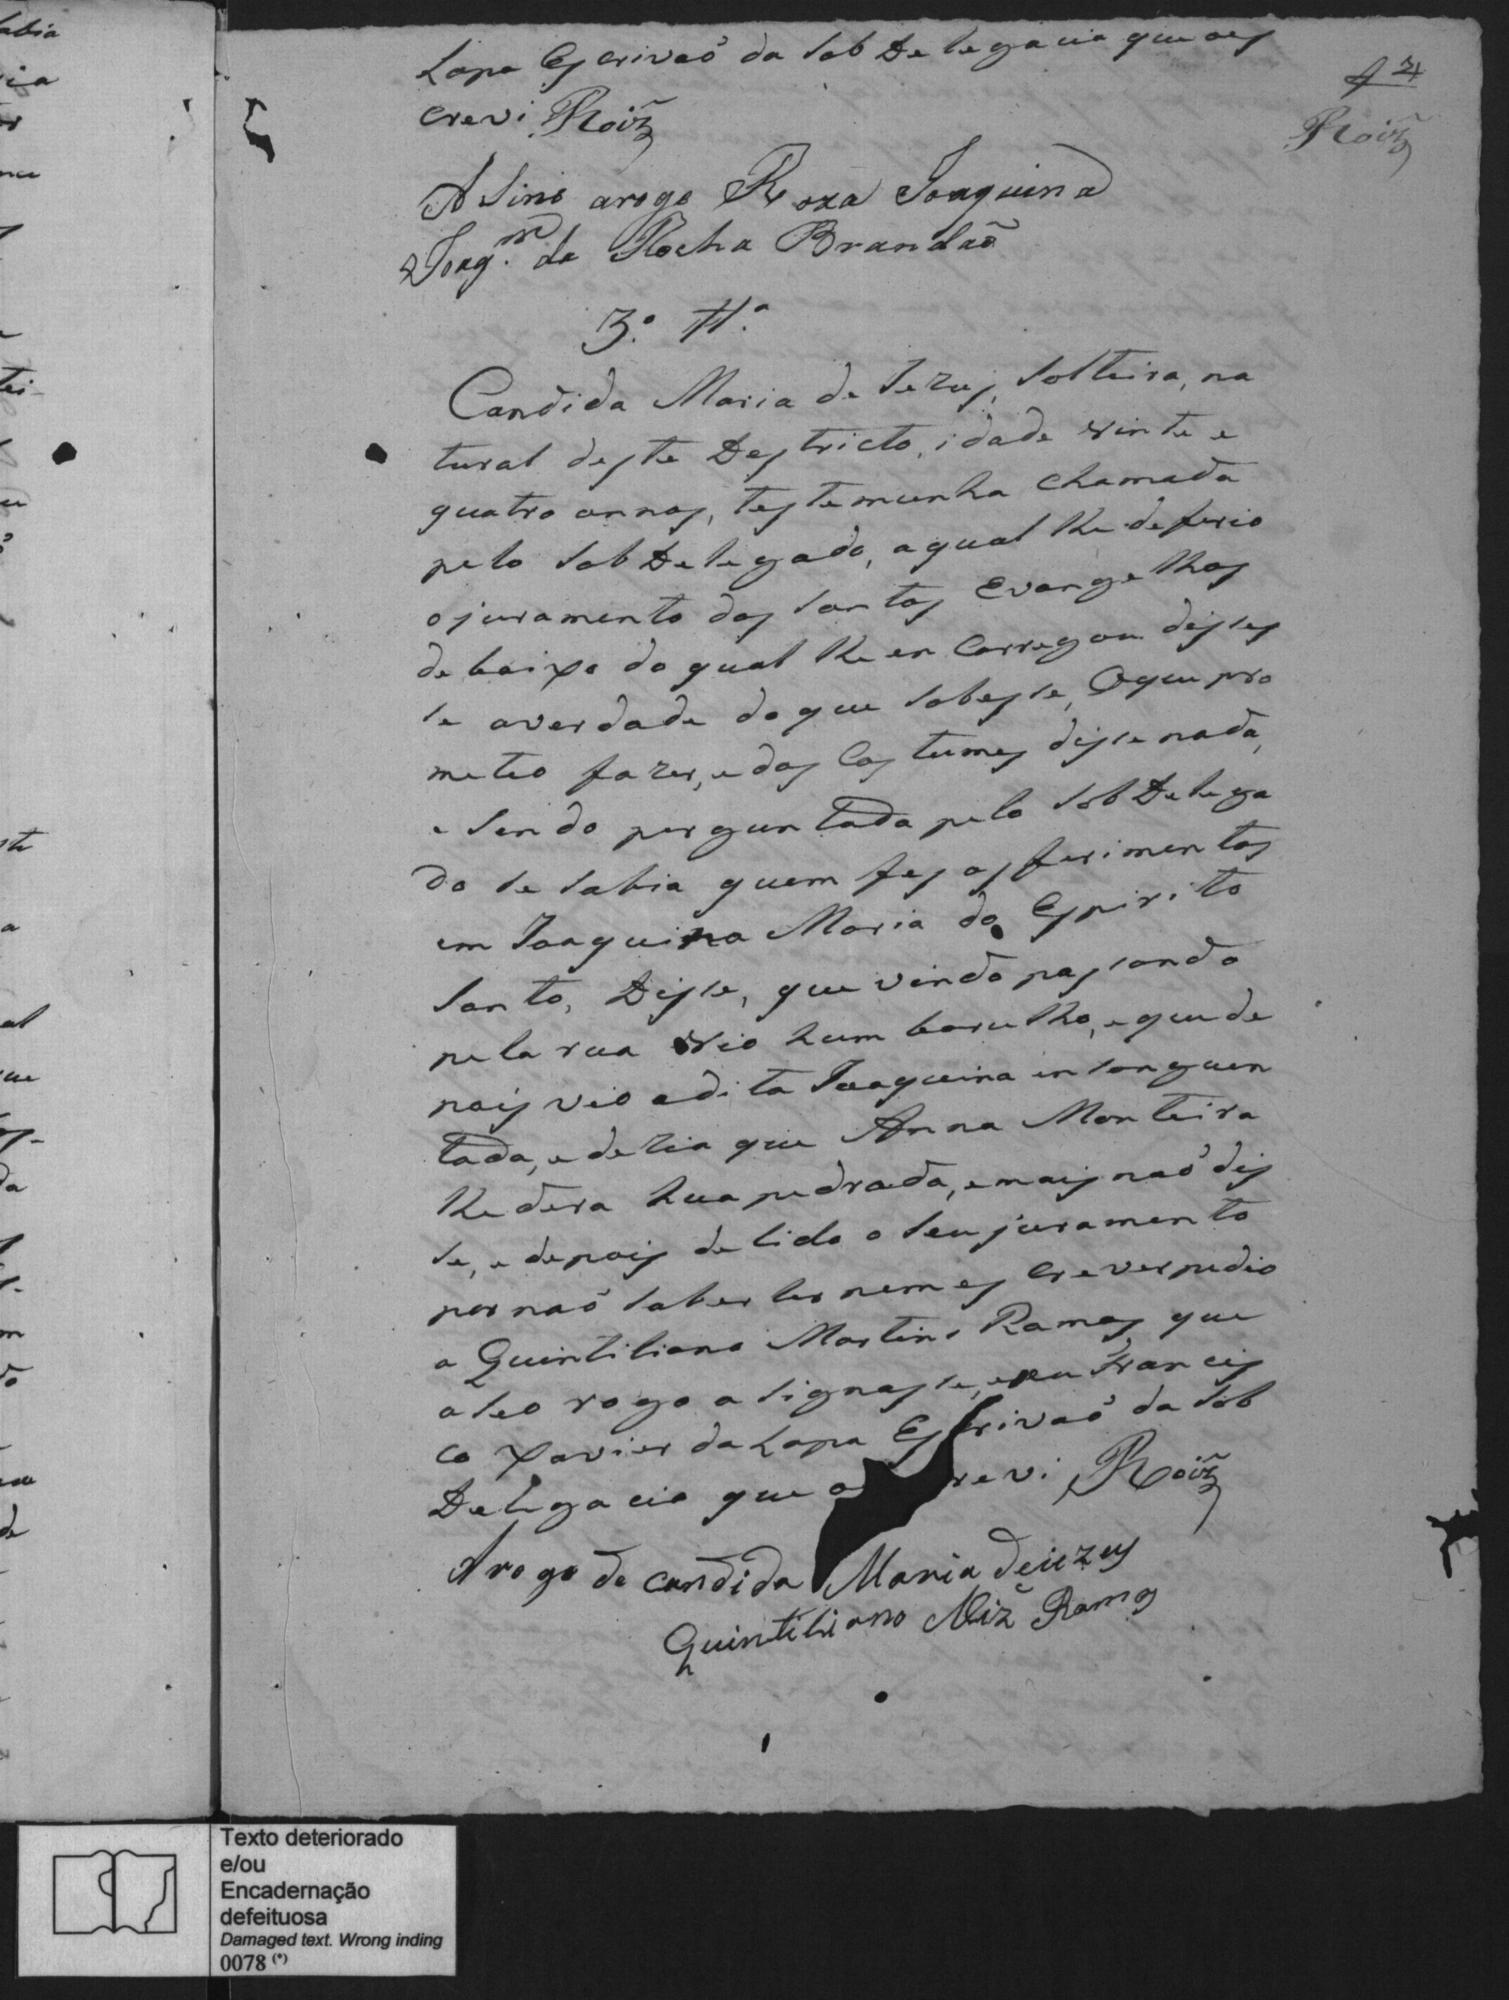 Lapa Escrivaõ da Sob Delegacia que oes
crevi Roiz̃
4
Roiz̃
A Sino arogo Roza Joaquina
Joaq.m da Rocha Brandaõ
3.ª T.ª
Candida Maria de Jezus, Solteira, na
tural deste Destricto, idade vinte e
quatro annos, testemunha chamada
pelo Sob Delegado, aqual lhe deferio
ojuramento dos Santos Evangelhos
debaixo do qual lhe en Carregou disses
se averdade do que Sobesse, Oque pro
meteo fazer, e dos Costumes disse nada,
e Sendo perguntada pelo Sob Delega
do Se Sabia quem fes os ferimentos
em Joaquina Maria do Espirito
Santo, Disse, que vindo passando
pela rua vio hum barulho, e que de
pois vio adita Joaquina in sanguen
tada, e dezia que Anna Monteira
lhe dera hua pedrada, e mais naõ dis
se, e depois de lido o Seu juramento
por naõ Saber ler nem es Crever pedio
a Quintiliano Martins Ramos que
a Seo rogo a Signasse, e eu Francis
co Xavier da Lapa Escrivaõ da Sob
Delegacia que o revi Roiz̃
Arogo de Candida Maria deiezus
Quintiliano Miz̃ Ramos
Texto deteriorado
e/ou
Encadernação
defeituosa
Damaged text. Wrong inding
0078 (*)